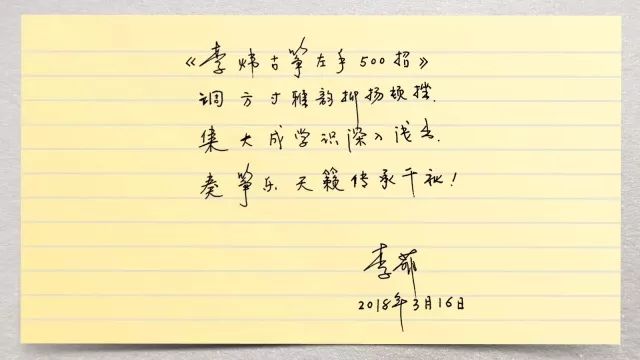 《李炜古筝左手500招》
调方寸雅韵抑扬顿挫.
集大成学识深入浅出.
奏筝乐天籁传承千秋!
李
2018年3月16日